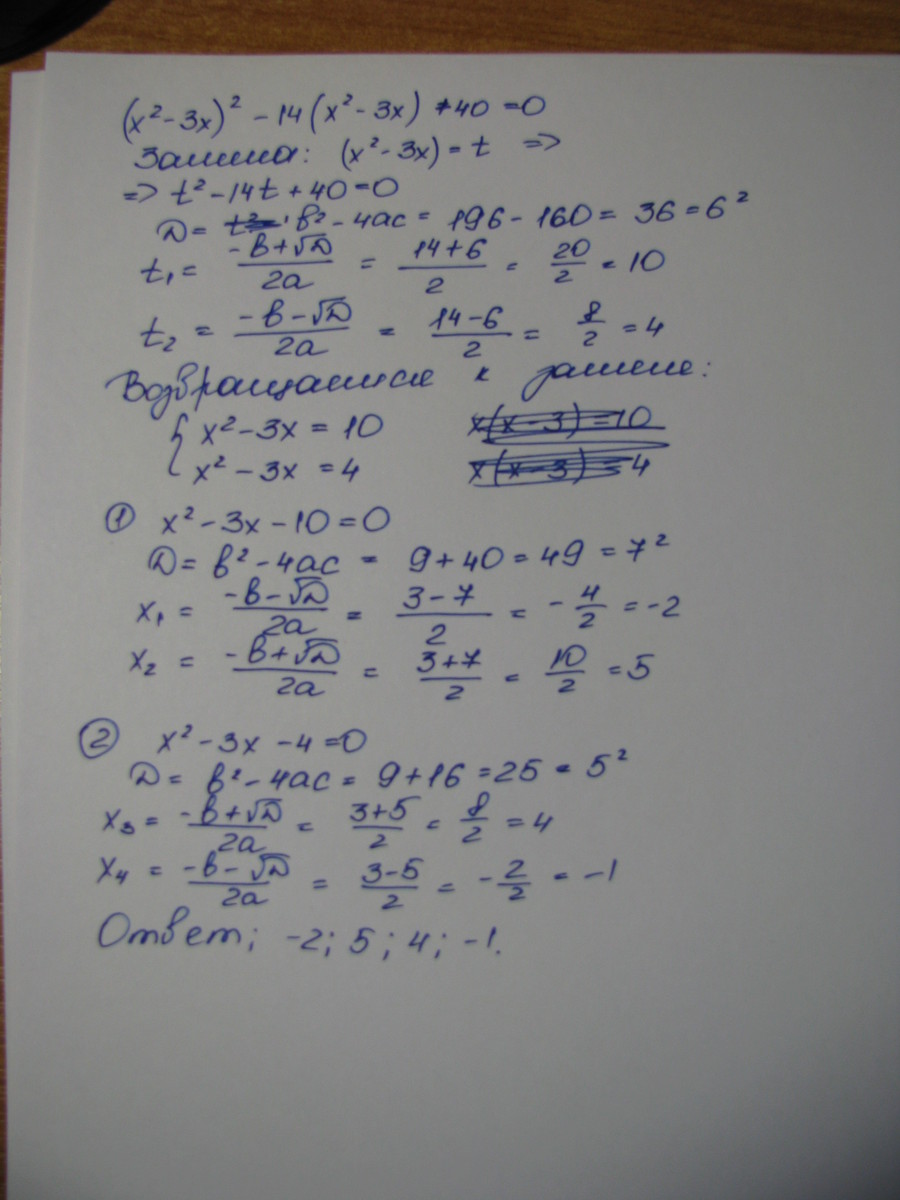 (x² - 3x)² - 14(x² - 3x) + 40 = 0
Замена: (x² - 3x) = t =>
=> t² - 14t + 40 = 0
D = b² - 4ac = 196 - 160 = 36 = 6²
t₁ = (-b + √D)/2a = (14 + 6)/2 = 20/2 = 10
t₂ = (-b - √D)/2a = (14 - 6)/2 = 8/2 = 4
Возвращаемся к замене:
{ x² - 3x = 10 x(x - 3) = 10
x² - 3x = 4 x(x - 3) = 4
① x² - 3x - 10 = 0
D = b² - 4ac = 9 + 40 = 49 = 7²
x₁ = (-b - √D)/2a = (3 - 7)/2 = -4/2 = -2
x₂ = (-b + √D)/2a = (3 + 7)/2 = 10/2 = 5
② x² - 3x - 4 = 0
D = b² - 4ac = 9 + 16 = 25 = 5²
x₃ = (-b + √D)/2a = (3 + 5)/2 = 8/2 = 4
x₄ = (-b - √D)/2a = (3 - 5)/2 = -2/2 = -1
Ответ: -2; 5; 4; -1.